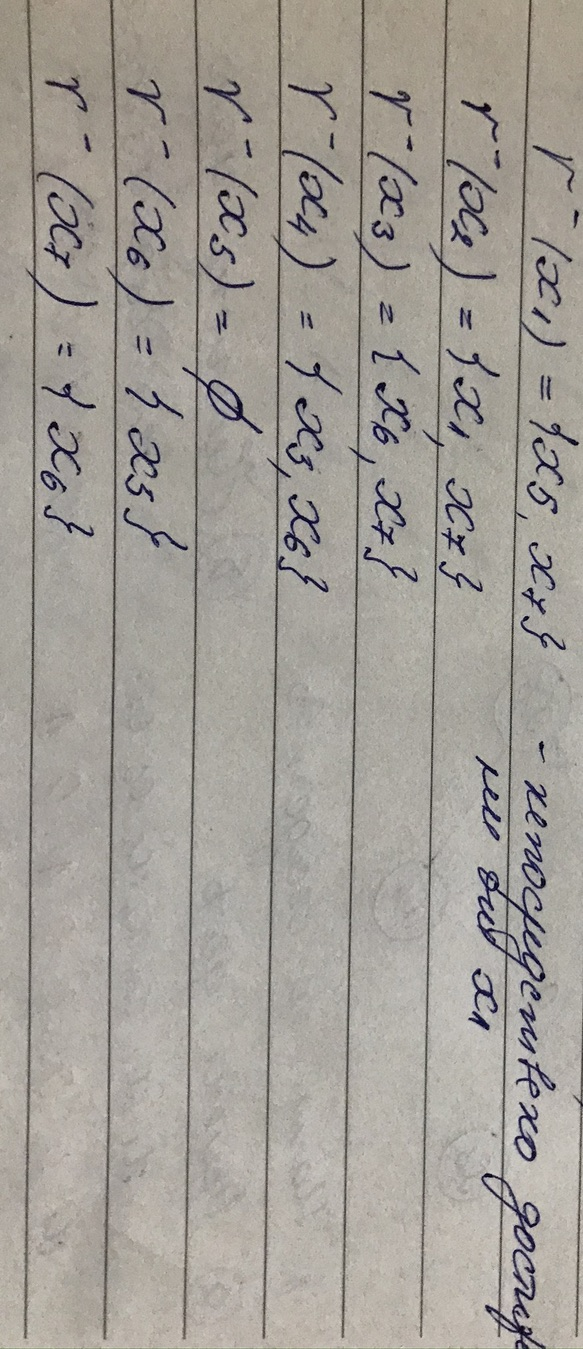 Γ⁻(x₁) = {x₅, x₇} - непосредствено достиж
мые для x₁
Γ⁻(x₂) = {x₁, x₇}
Γ⁻(x₃) = {x₆, x₇}
Γ⁻(x₄) = {x₃, x₆}
Γ⁻(x₅) = ∅
Γ⁻(x₆) = {x₅}
Γ⁻(x₇) = {x₆}